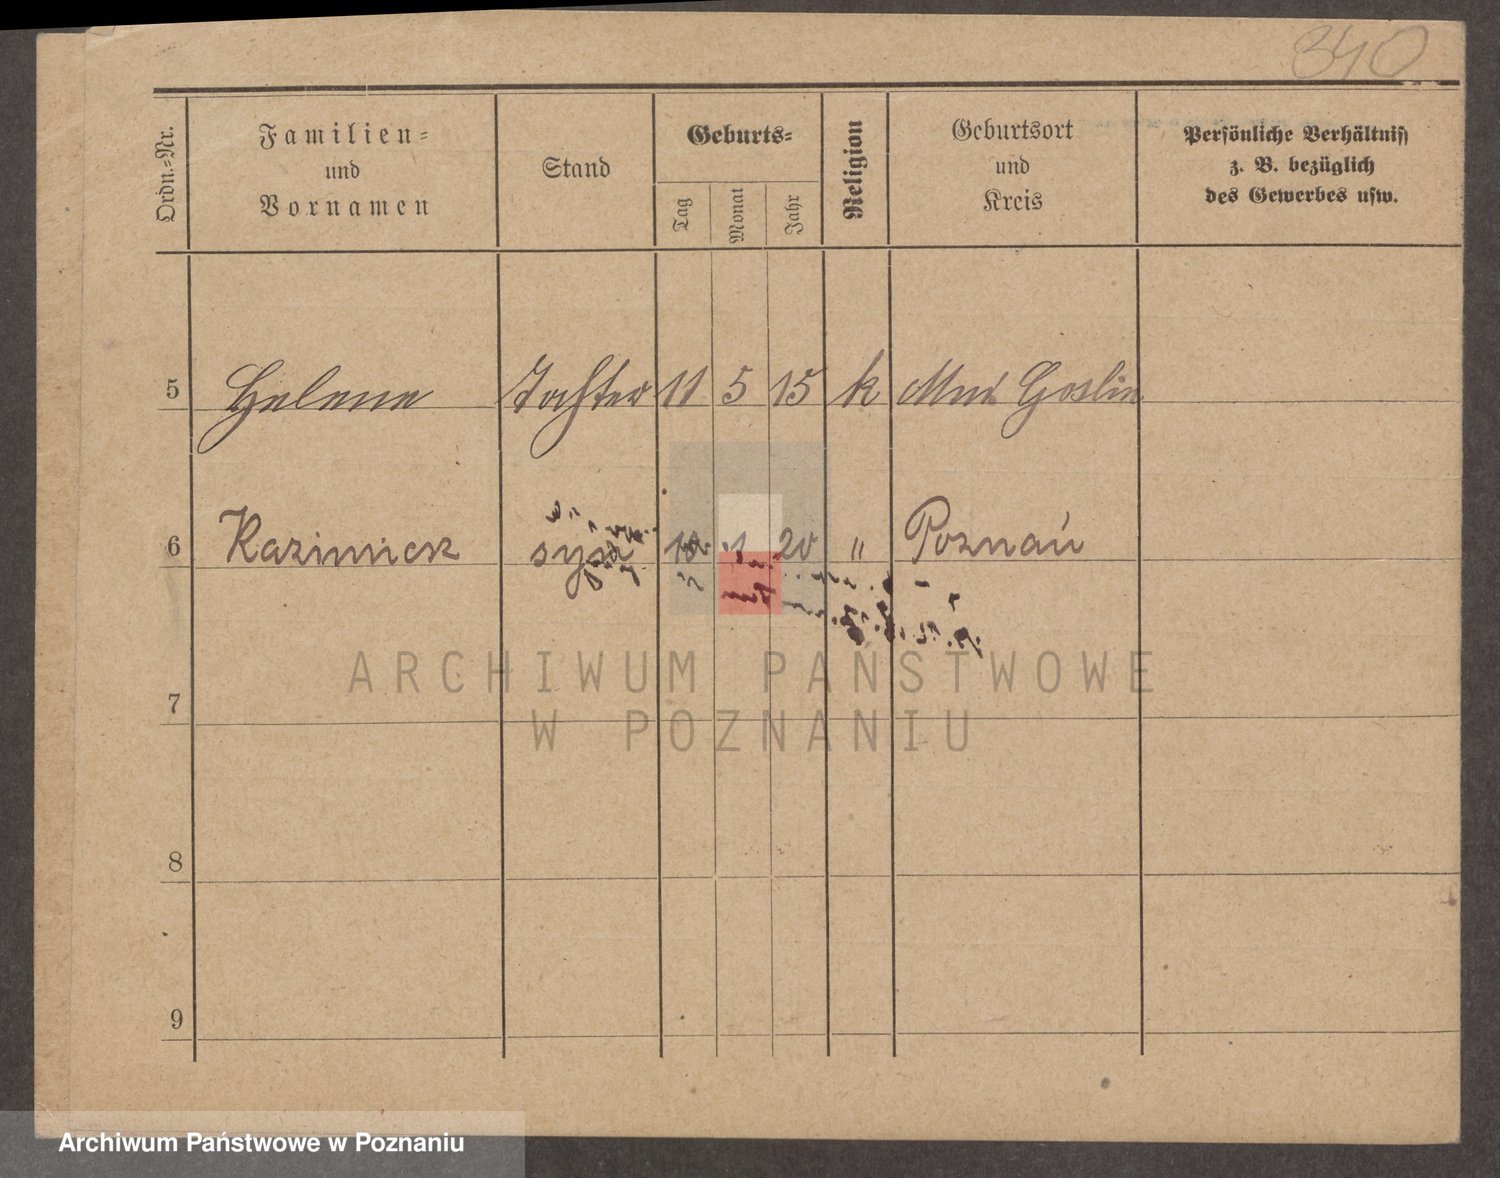 340
Ordn.-Nr.
Familien-
und
Vornamen
Stand
Geburts-
Tag
Monat
Jahr
Religion
Geburtsort
und
Kreis
Persönliche Verhältniss
z. B. bezüglich
des Gewerbes usw.
5 Helene Tochter 11 5 15 k Mur. Goslin
6 Kazimierz syn 1 20 " Poznań
7
8
9
ARCHIWUM PAŃSTWOWE
W POZNANIU
Archiwum Państwowe w Poznaniu